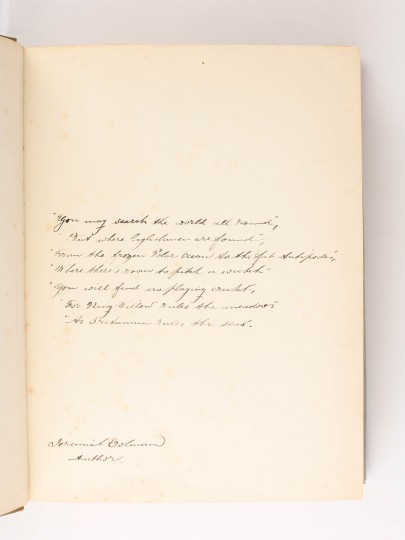 "You may search the world all round",
"But where Englishmen are found",
"From the frozen Polar Ocean to the Antipodes",
"Where there's room to pitch a wicket"
"You will find us playing cricket,
"For King Willow rules the meadow"
"As Britannia rules the seas.
Jeremiah Colman
Author.